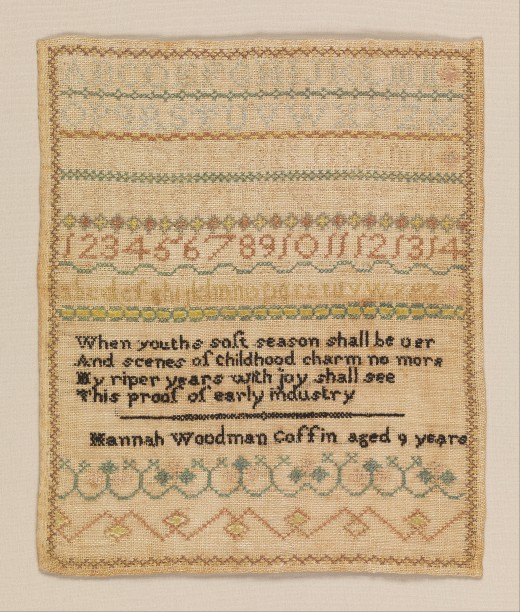 A B C D E F G H I J K L M N
O P Q R S T U V W X Y Z &
1 2 3 4 5 6 7 8 9 10 11 12 13 14
a b c d e f g h i j k l m n o p q r s t u v w x y z
When youths soft season shall be oer
And scenes of childhood charm no more
My riper years with joy shall see
This proof of early industry
Hannah Woodman Coffin aged 9 years